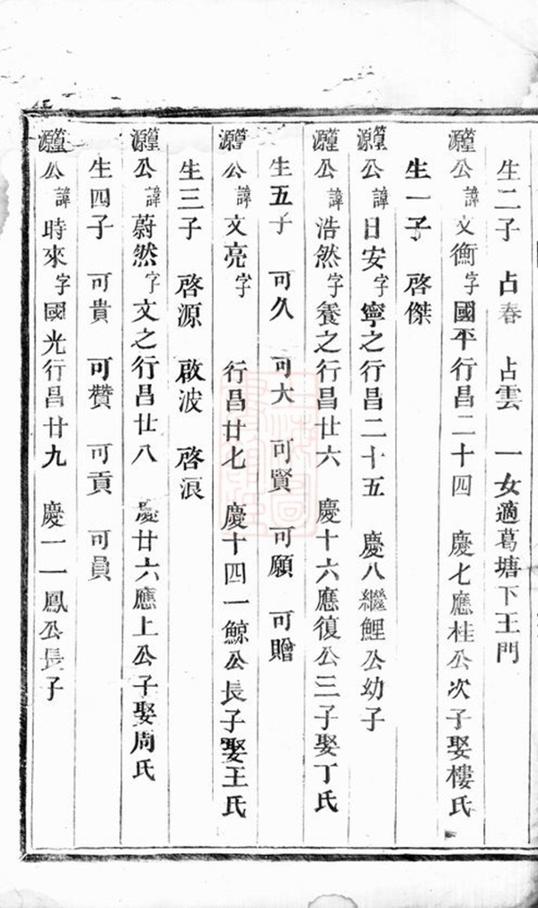 生二子 占春 占雲 一女適葛塘下王門
簹源公諱文衡字國平行昌二十四 慶七應桂公次子娶樓氏
生一子 啓傑
簹源公諱日安字寧之行昌二十五 慶八繼鯉公幼子
簹源公諱浩然字養之行昌廿六 慶十六應復公三子娶丁氏
生五子 可久 可大 可賢 可願 可贈
簹源公諱文亮字 行昌廿七 慶十四一鯨公長子娶王氏
生三子 啓源 啟波 啓浪
簹源公諱蔚然字文之行昌廿八 慶廿六應上公子娶周氏
生四子 可貴 可贊 可貢 可員
簹源公諱時來字國光行昌廿九 慶一一鳳公長子